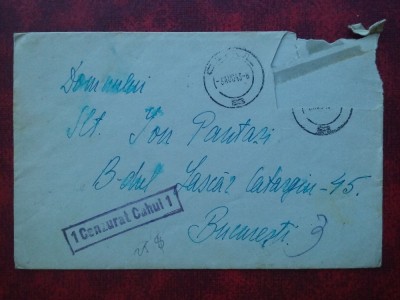 Domnului
Slt. Ion Pantazi
B-dul Lascăr Catargiu-45.
București. 3
1 Cenzurat Cahul 1